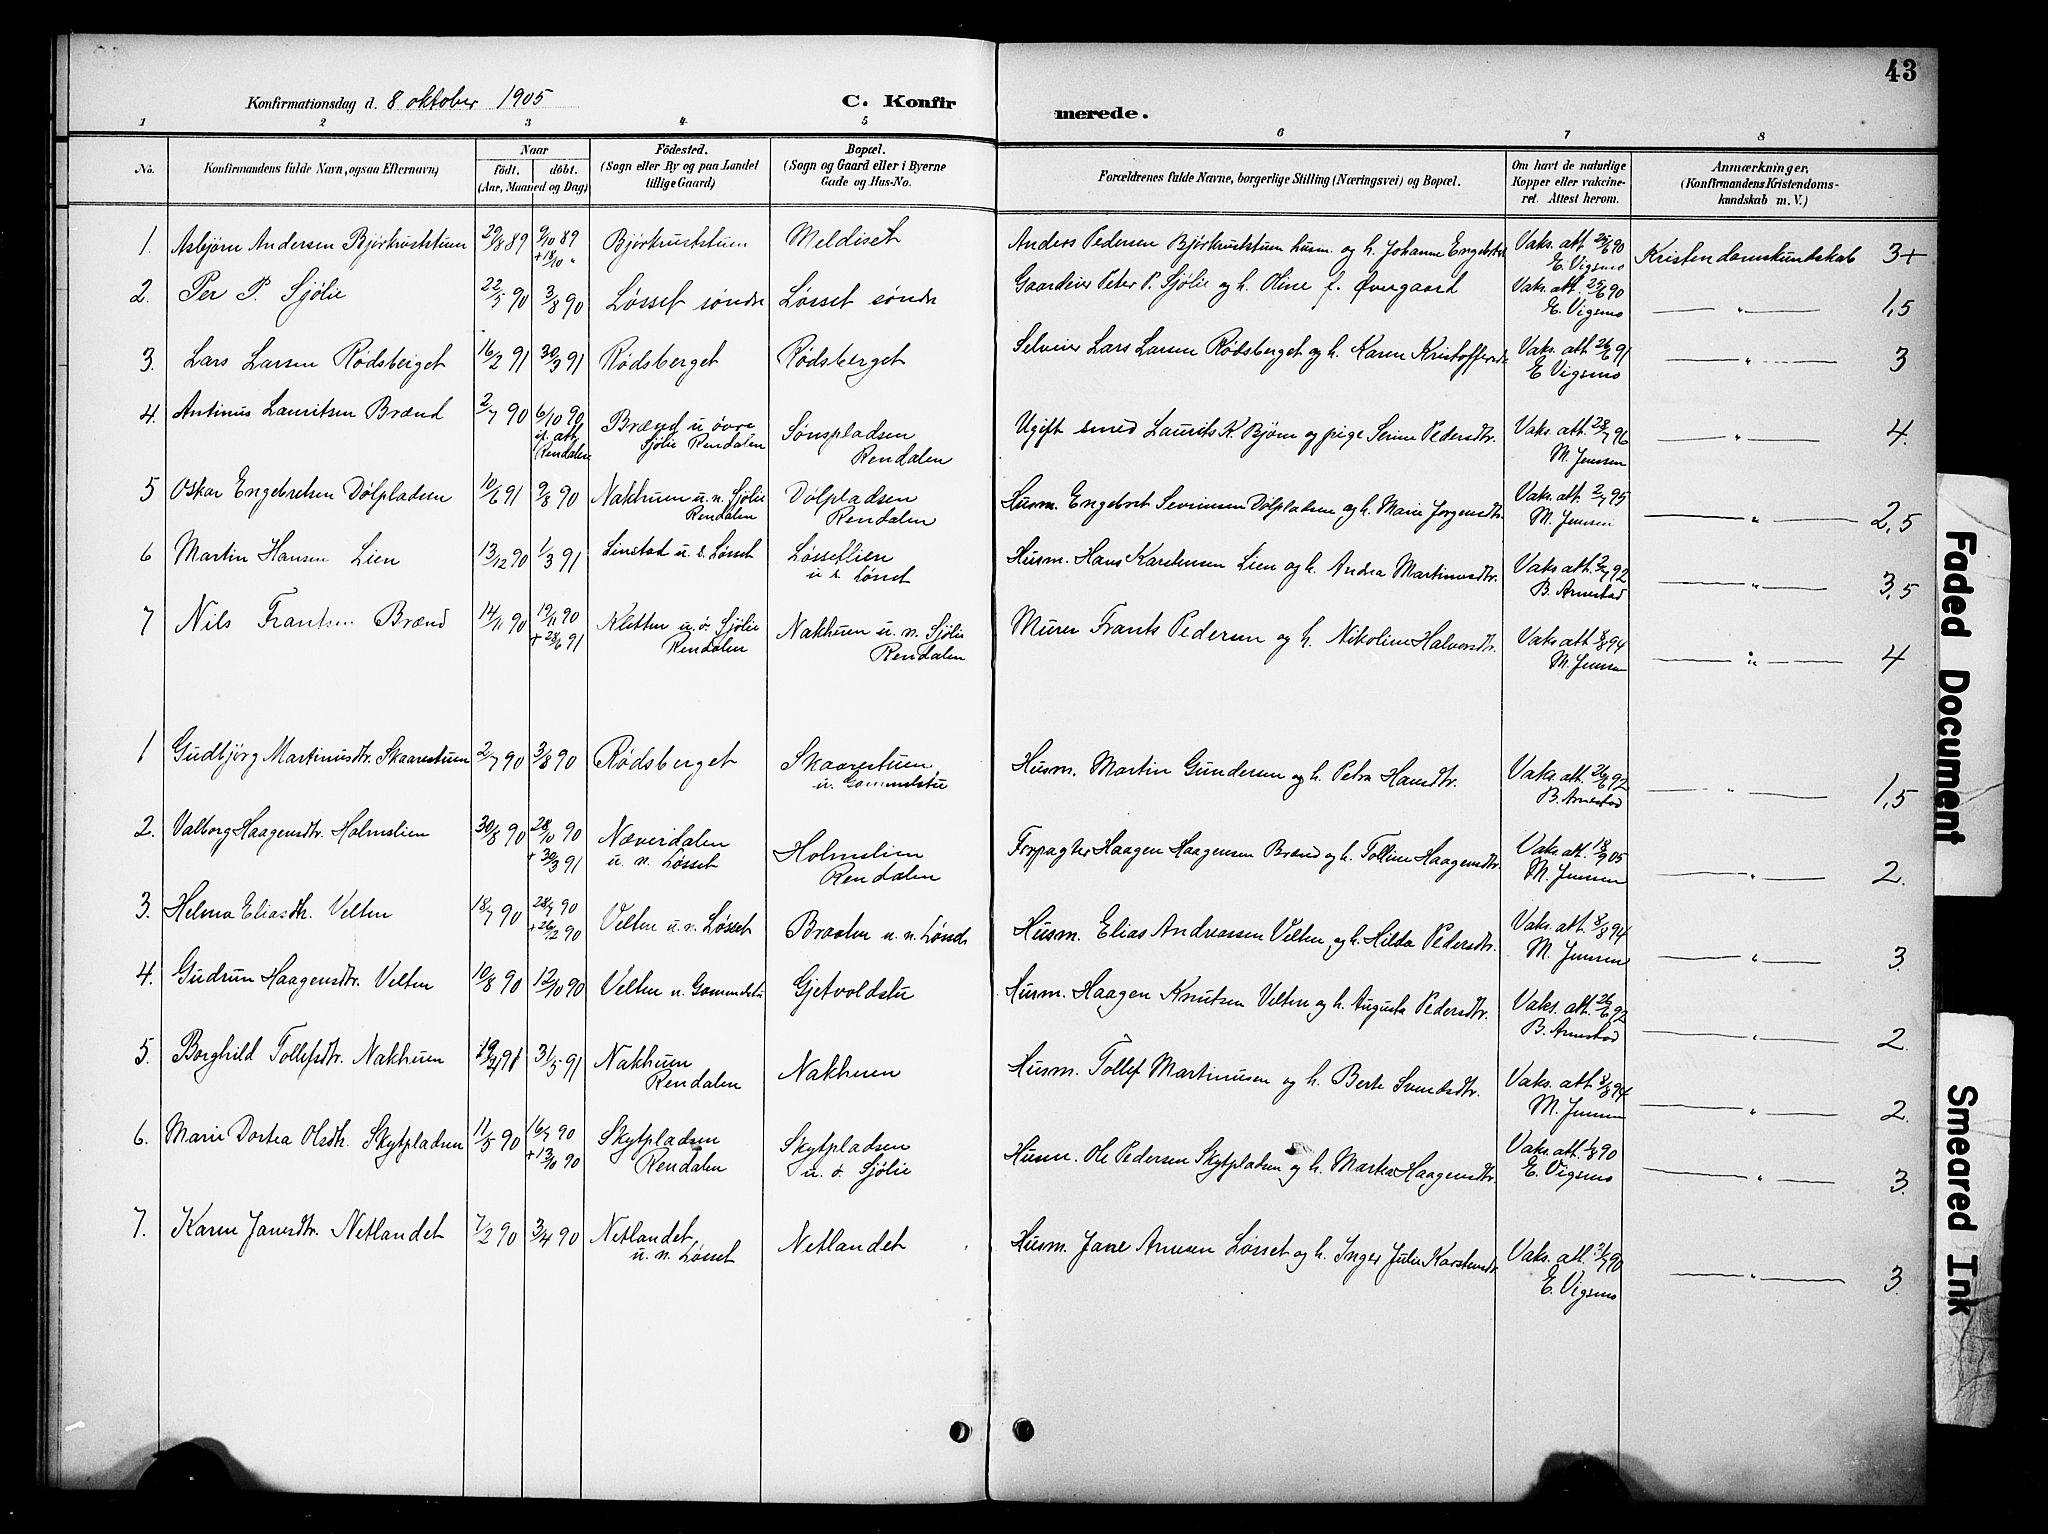 43
Konfirmationsdag d. 8 oktober 1905 C. Konfirmerede.
1 2 3 4 5 6 7 8
No. Konfirmandens fulde Navn, ogsaa Efternavn) Naar födt. döbt. (Aar, Maaned og Dag) Födested. (Sogn eller By og paa Landet tillige Gaard) Bopæl. (Sogn og Gaard eller i Byerne Gade og Hus-No. Forældrenes fulde Navne, borgerlige Stilling (Næringsvei) og Bopæl. Om havt de naturlige Kopper eller vakcineret. Attest herom. Anmærkninger, (Konfirmandens Kristendomskundskab m. V.)
1. Asbjørn Andersen Bjørkuststuen 29/8 89 9/10 89 + 18/10 " Bjørkuststuen Meldiset Anders Pedersen Bjørkuststuen husm. og h. Johanne Engebretsd. Vaks. att. 25/6 90 E. Vigsmo Kristendomskundskab 3+
2. Per P. Sjölie 22/5 90 3/8 90 Løsset søndre Løsset søndre Gaardeier Peter P. Sjølie og h. Oline f. Øvergaard Vaks. att. 25/6 90 E. Vigsmo " 1,5
3. Lars Larsen Rødsberget 16/2 91 30/3 91 Rødsberget Rødsberget Selveier Lars Larsen Rødsberget og h. Karen Kristoffersdr Vaks. att. 26/6 91 E. Vigsmo " 3
4. Antinus Lauritsen Brænd 2/7 90 6/10 90 if. att. Rendalen Brænd u. övre Sjölie Rendalen Sønspladsen Rendalen Ugift smed Laurits K. Bjørn og pige Serine Pedersdtr. Vaks. att. 28/7 96 M. Jensen " 4.
5 Oskar Engebretsen Dölpladsen 10/6 91 9/8 90 Nakhuen u. n. Sjölie Rendalen Dölpladsen Rendalen Husm. Engebret Severinsen Dölpladsen og h. Marie Jørgensdtr. Vaks. att. 2/7 95 M. Jensen " 2,5
6 Martin Hansen Lien 13/12 90 1/3 91 Linstad u. s. Løsset Løssetlien u. s. Løsset Husm. Hans Karstensen Lien og h. Andrea Martinusdtr. Vaks att. 2/7 92 B. Arnestad " 3,5
7 Nils Frantsen Brænd 14/11 90 19/11 90 + 28/6 91 Kletten u. ö. Sjölie Rendalen Nakhuen u. n. Sjölie Rendalen Murer Frants Pedersen og h. Nikoline Halvorsdtr. Vaks att. 8/8 94 M. Jensen " 4
1 Gudbjörg Martinusdtr. Skaarestuen 2/7 90 3/8 90 Rødsberget Skaarestuen u. Gammelstu Husm. Martin Gundersen og h. Petra Hansdtr. Vaks. att. 26/6 92 B. Arnestad " 1,5
2. Valborg Haagensdtr. Holmslien 30/8 90 28/10 90 + 30/3 91 Næverdalen u. n. Løsset Holmslien Rendalen Forpagter Haagen Haagensen Brænd og h. Tolline Haagensdtr. Vaks. att. 18/9 05 M. Jensen " 2.
3. Helma Eliasdtr. Velten 18/7 90 28/7 90 + 26/12 90 Velten u. n. Løsset Braaten u. n. Lønset Husm. Elias Andreassen Velten og h. Hilda Pedersdtr. Vaks. att. 8/8 94 M. Jensen " 3.
4. Gudrun Haagensdtr. Velten 10/8 90 12/10 90 Velten u. Gammelstu Gjetvoldstu Husm. Haagen Knutsen Velten og h. Augusta Pedersdtr. Vaks. att. 26/6 92 B. Arnestad " 2.
5. Borghild Tollefsdtr. Nakhuen 19/4 91 31/5 91 Nakhuen Rendalen Nakhuen Husm. Tollef Martinusen og h. Berte Svendsdtr. Vaks. att. 8/8 94 M. Jensen " 2.
6. Marie Dortea Olsdtr. Skytpladsen 11/5 90 16/7 90 + 13/10 90 Skytpladsen Rendalen Skytpladsen u. ö. Sjølie Husm. Ole Pedersen Skytpladsen og h. Martea Haagensdtr. Vaks. att. 1/8 90 E. Vigsmo " 3.
7. Karen Janesdtr. Netlandet 7/2 90 3/4 90 Netlandet u. n. Løsset Netlandet Husm. Jane Arnesen Løsset og h. Inger Julie Karstensdtr. Vaks. att. 90 E. Vigsmo " 3.
Faded Document
Smeared Ink